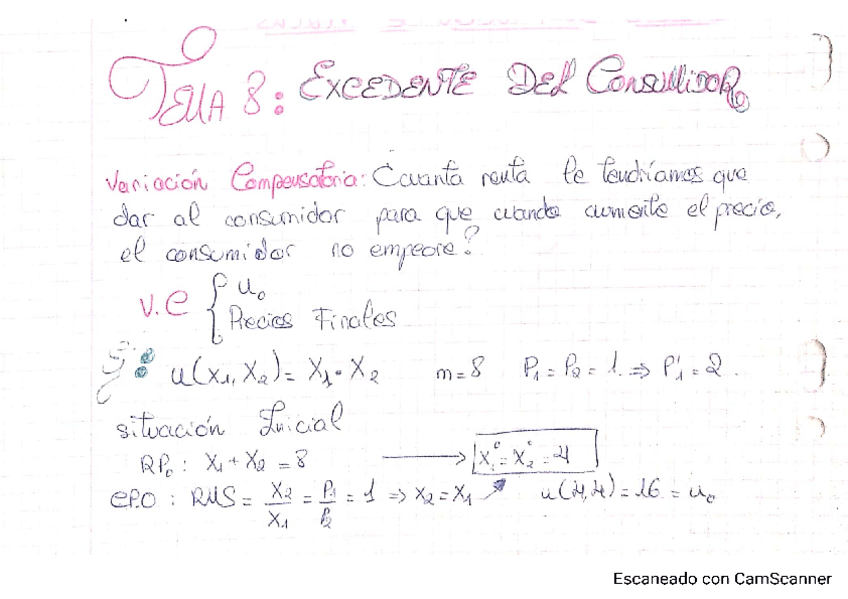 Tema 8: Excedente del Consumidor
Variación Compensatoria: Cuanta renta le tendríamos que
dar al consumidor para que cuando aumente el precio,
el consumidor no empeore?
V.C { u₀
Precios Finales
Ej: u(x₁, x₂) = x₁ · x₂ m = 8 P₁ = P₂ = 1 ⇒ P₁' = 2.
Situación Inicial
RP₀ : x₁ + x₂ = 8 → x₁⁰ = x₂⁰ = 4
EPO : RMS = x₂/x₁ = P₁/P₂ = 1 ⇒ x₂ = x₁ ↗ u(4,4) = 16 = u₀
Escaneado con CamScanner